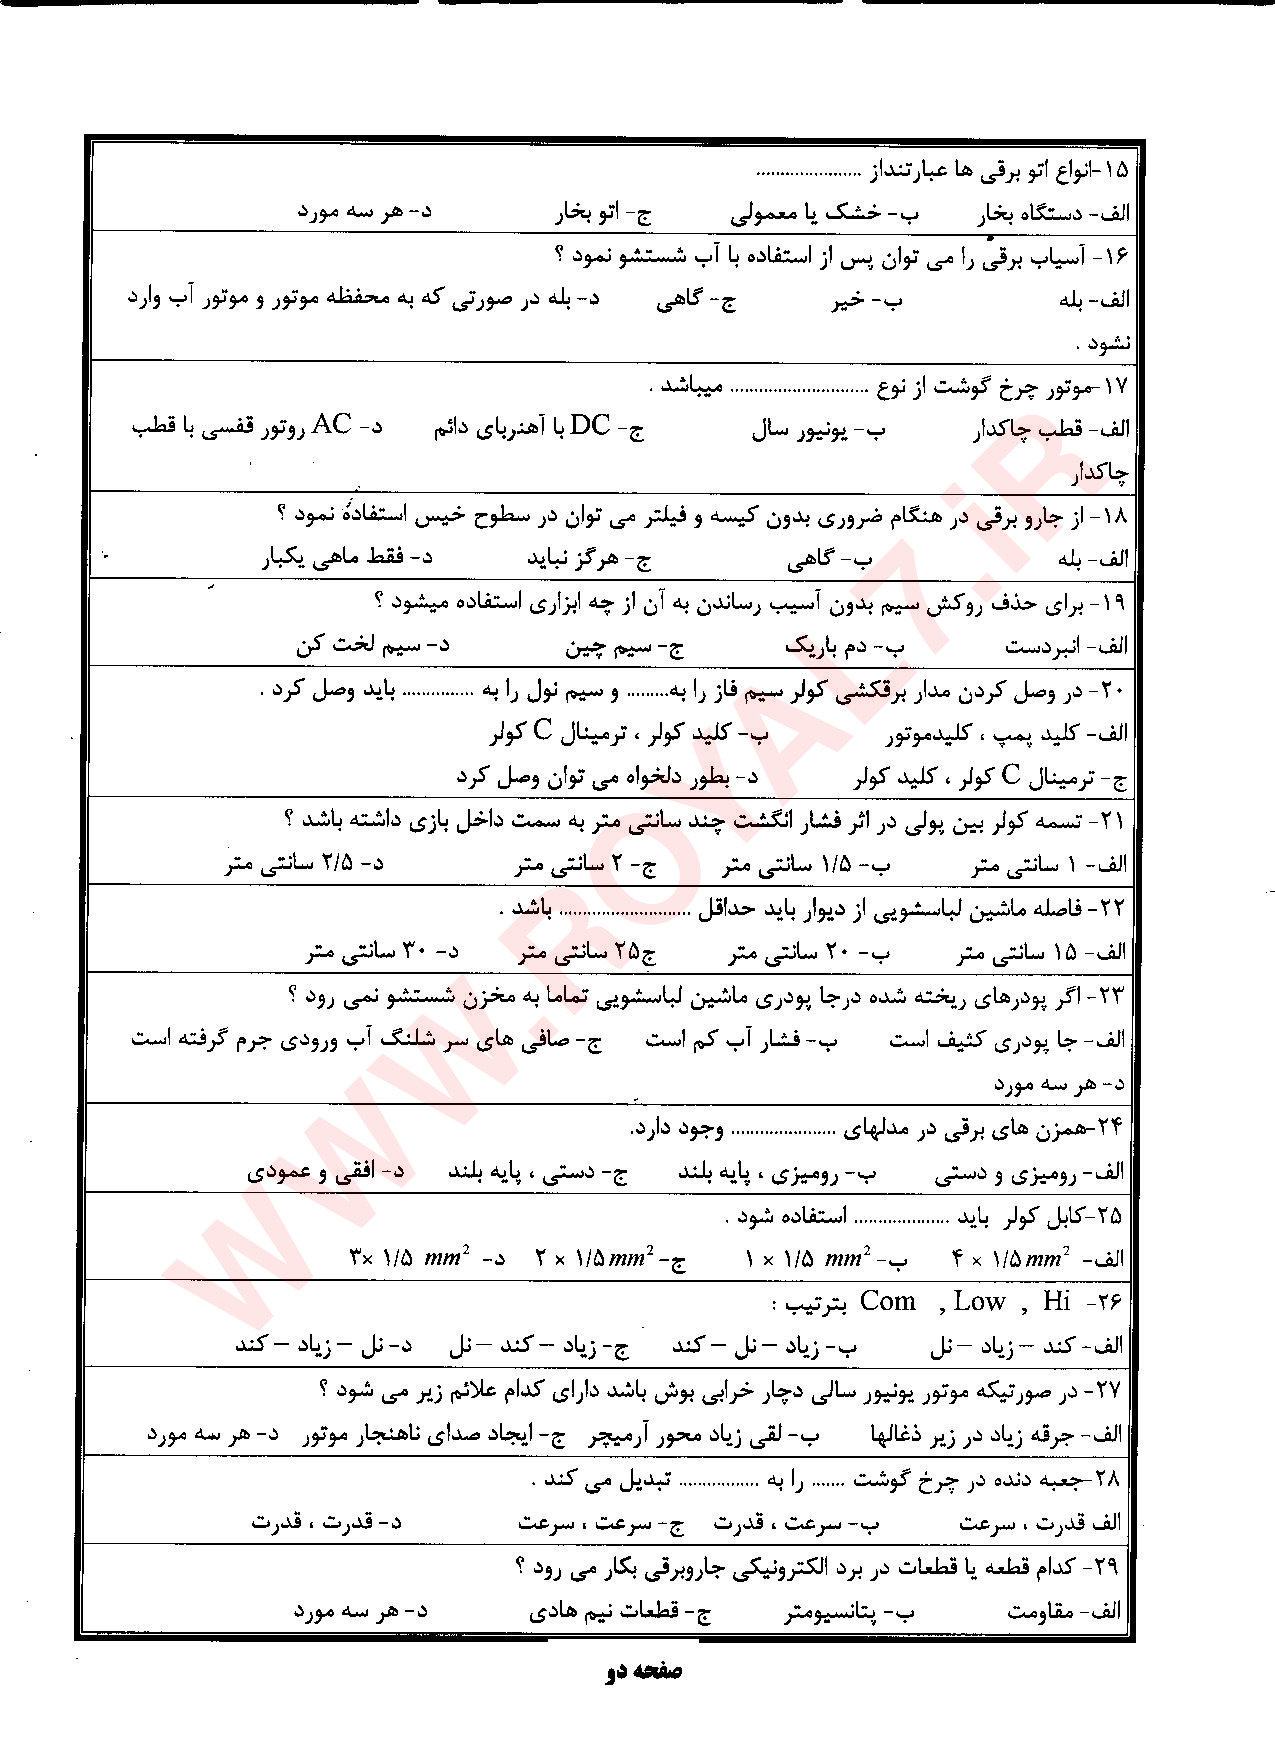 ۱۵-انواع اتو برقی ها عبارتنداز ......................
الف- دستگاه بخار ب- خشک یا معمولی ج- اتو بخار د- هر سه مورد
۱۶- آسیاب برقی را می توان پس از استفاده با آب شستشو نمود ؟
الف- بله ب- خیر ج- گاهی د- بله در صورتی که به محفظه موتور و موتور آب وارد
نشود .
۱۷-موتور چرخ گوشت از نوع ............................. میباشد .
الف- قطب چاکدار ب- یونیور سال ج- DC با آهنربای دائم د- AC روتور قفسی با قطب
چاکدار
۱۸- از جارو برقی در هنگام ضروری بدون کیسه و فیلتر می توان در سطوح خیس استفاده نمود ؟
الف- بله ب- گاهی ج- هرگز نباید د- فقط ماهی یکبار
۱۹- برای حذف روکش سیم بدون آسیب رساندن به آن از چه ابزاری استفاده میشود ؟
الف- انبردست ب- دم باریک ج- سیم چین د- سیم لخت کن
۲۰- در وصل کردن مدار برقکشی کولر سیم فاز را به......... و سیم نول را به ............... باید وصل کرد .
الف- کلید پمپ ، کلیدموتور ب- کلید کولر ، ترمینال C کولر
ج- ترمینال C کولر ، کلید کولر د- بطور دلخواه می توان وصل کرد
۲۱- تسمه کولر بین پولی در اثر فشار انگشت چند سانتی متر به سمت داخل بازی داشته باشد ؟
الف- ۱ سانتی متر ب- ۱/۵ سانتی متر ج- ۲ سانتی متر د- ۲/۵ سانتی متر
۲۲- فاصله ماشین لباسشویی از دیوار باید حداقل ............................ باشد .
الف- ۱۵ سانتی متر ب- ۲۰ سانتی متر ج۲۵ سانتی متر د- ۳۰ سانتی متر
۲۳- اگر پودرهای ریخته شده درجا پودری ماشین لباسشویی تماما به مخزن شستشو نمی رود ؟
الف- جا پودری کثیف است ب- فشار آب کم است ج- صافی های سر شلنگ آب ورودی جرم گرفته است
د- هر سه مورد
۲۴-همزن های برقی در مدلهای ...................... وجود دارد.
الف- رومیزی و دستی ب- رومیزی ، پایه بلند ج- دستی ، پایه بلند د- افقی و عمودی
۲۵-کابل کولر باید .................... استفاده شود .
الف- ۴ × ۱/۵ mm² ب- ۱ × ۱/۵ mm² ج- ۲ × ۱/۵ mm² د- ۳× ۱/۵ mm²
۲۶- Com , Low , Hi بترتیب :
الف- کند – زیاد – نل ب- زیاد – نل – کند ج- زیاد – کند – نل د- نل – زیاد – کند
۲۷- در صورتیکه موتور یونیور سالی دچار خرابی بوش باشد دارای کدام علائم زیر می شود ؟
الف- جرقه زیاد در زیر ذغالها ب- لقی زیاد محور آرمیچر ج- ایجاد صدای ناهنجار موتور د- هر سه مورد
۲۸-جعبه دنده در چرخ گوشت ....... را به ................. تبدیل می کند .
الف قدرت ، سرعت ب- سرعت ، قدرت ج- سرعت ، سرعت د- قدرت ، قدرت
۲۹- کدام قطعه یا قطعات در برد الکترونیکی جاروبرقی بکار می رود ؟
الف- مقاومت ب- پتانسیومتر ج- قطعات نیم هادی د- هر سه مورد
صفحه دو
WWW.ROYAL7.iR